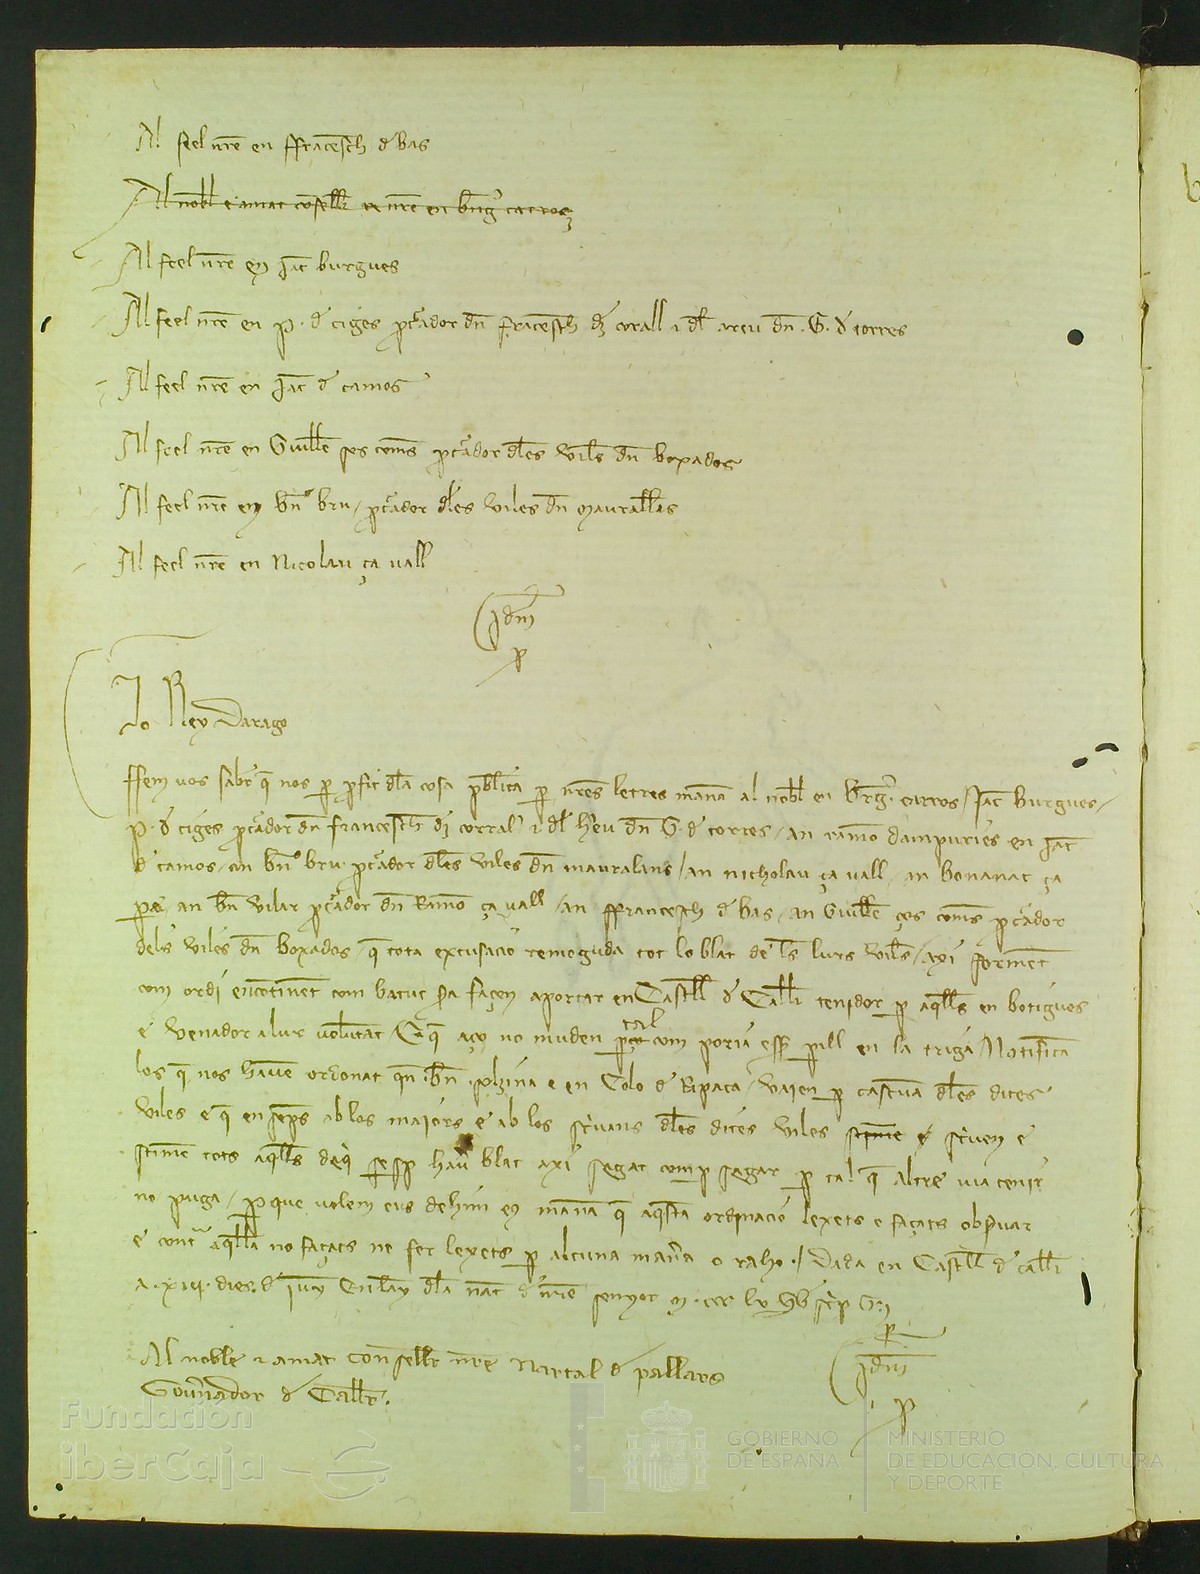 Al feel nre en ffrancesch d bas
Al nobl e amat consellr nre en bng carros
Al feel nre en Jac burgues
Al feel nre en P. d ciges pcador dn francesch d corall e dl areu dn G. d torres
Al feel nre en Jac d camos
Al feel nre en Guille ses coms pcador dles viles dn boxados
Al feel nre en bn bru pcador dles viles dn mauralles
Al feel nre en Nicolau ça vall
Idm
p
Lo Rey Darago
ffem vos saber q nos p pfit dla cosa publica p nres letres manam al nobl en brg carros / Jac burgues /
P. d ciges pcador dn francesch d corral e dl hereu dn G. d torres / an ramo dampuries en Jac
d camos / an bn bru pcador dles viles dn mauralans / an nicholau ça vall / an bonanat ça
pa / an bn vilar pcador dn Ramo ça vall / an ffrancesch d bas / an Guille ses coms pcador
dels viles dn boxados / q tota excusacio remoguda tot lo blat de ls lurs viles / axi forment
com ordi encontinent com batut sia façen aportar en Castell d Callr tenidor p aqlls en botigues
e venador a lur voluntat / E q aço no muden p tal com poria esser pill en la triga / Notifica
los q nos havem ordonat qn bn e en Colo d Ripaca / vaien p cascuna dles dites
viles e q ensemps ab los majors e ab los scrivans dles dites viles scriven e
stimen tots aqlls deq se sia haur blat axi segat com p segar p tal q altre via tenir
no puga / Pque volem eus dehim e manam q aqsta ordinacio lexets e façats obsvar
e contra aqlla no façats ne fer lexets p alcuna manera o raho / Dada en Castell d callr
a xiii dies d juny En lany dla nat d nre senyor m ccc lv
p
Idm
p
Al noble e amat conseller nre Nartal d pallars
Governador d Callr.
Fundación
iberCaja
GOBIERNO
DE ESPAÑA
MINISTERIO
DE EDUCACIÓN, CULTURA
Y DEPORTE